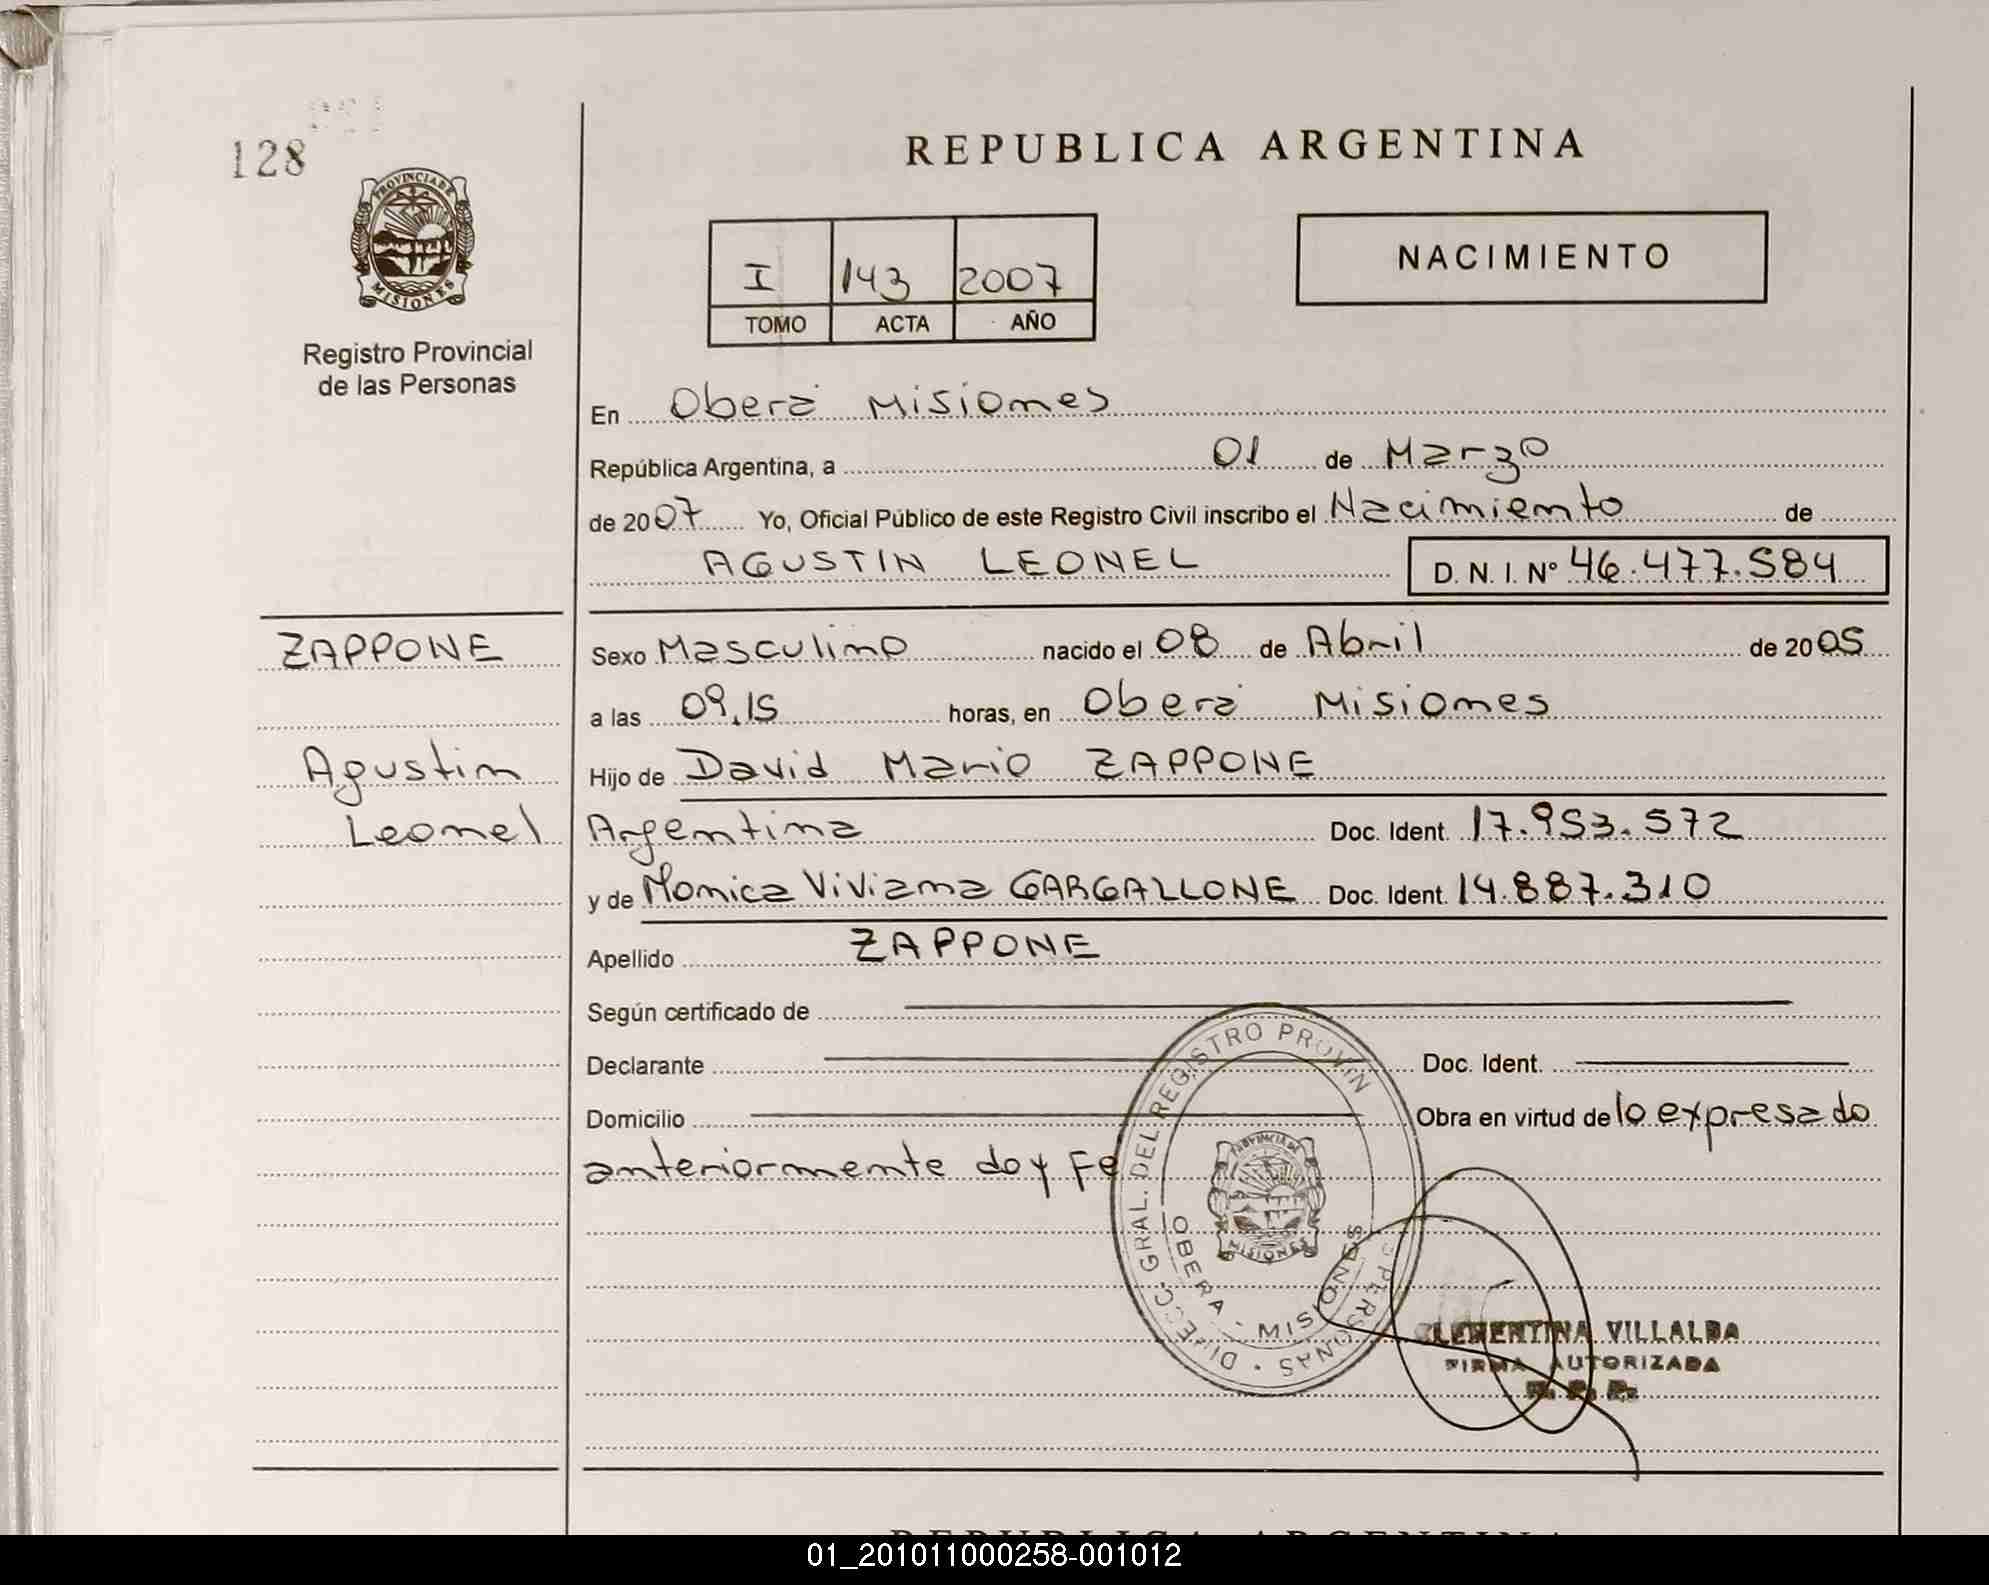 128
REPUBLICA ARGENTINA
PROVINCIA DE
MISIONES
Registro Provincial
de las Personas
I 143 2007
TOMO ACTA AÑO
NACIMIENTO
En Oberá Misiones
República Argentina, a 01 de Marzo
de 2007 Yo, Oficial Público de este Registro Civil inscribo el Nacimiento de
AGUSTIN LEONEL D.N.I. Nº 46.477.584
ZAPPONE
Agustin
Leonel
Sexo Masculino nacido el 08 de Abril de 2005
a las 09.15 horas, en Oberá Misiones
Hijo de David Mario ZAPPONE
Argentina Doc. Ident. 17.953.572
y de Monica Viviana GARGALLONE Doc. Ident. 14.887.310
Apellido ZAPPONE
Según certificado de
Declarante Doc. Ident.
Domicilio Obra en virtud de lo expresado
anteriormente doy Fe
DIRECC. GRAL. DEL REGISTRO PROVIN PERSONAS
OBERA - MISIONES
PROVINCIA DE
MISIONES
CLEMENTINA VILLALBA
FIRMA AUTORIZADA
REPUBLICA ARGENTINA
01_201011000258-001012